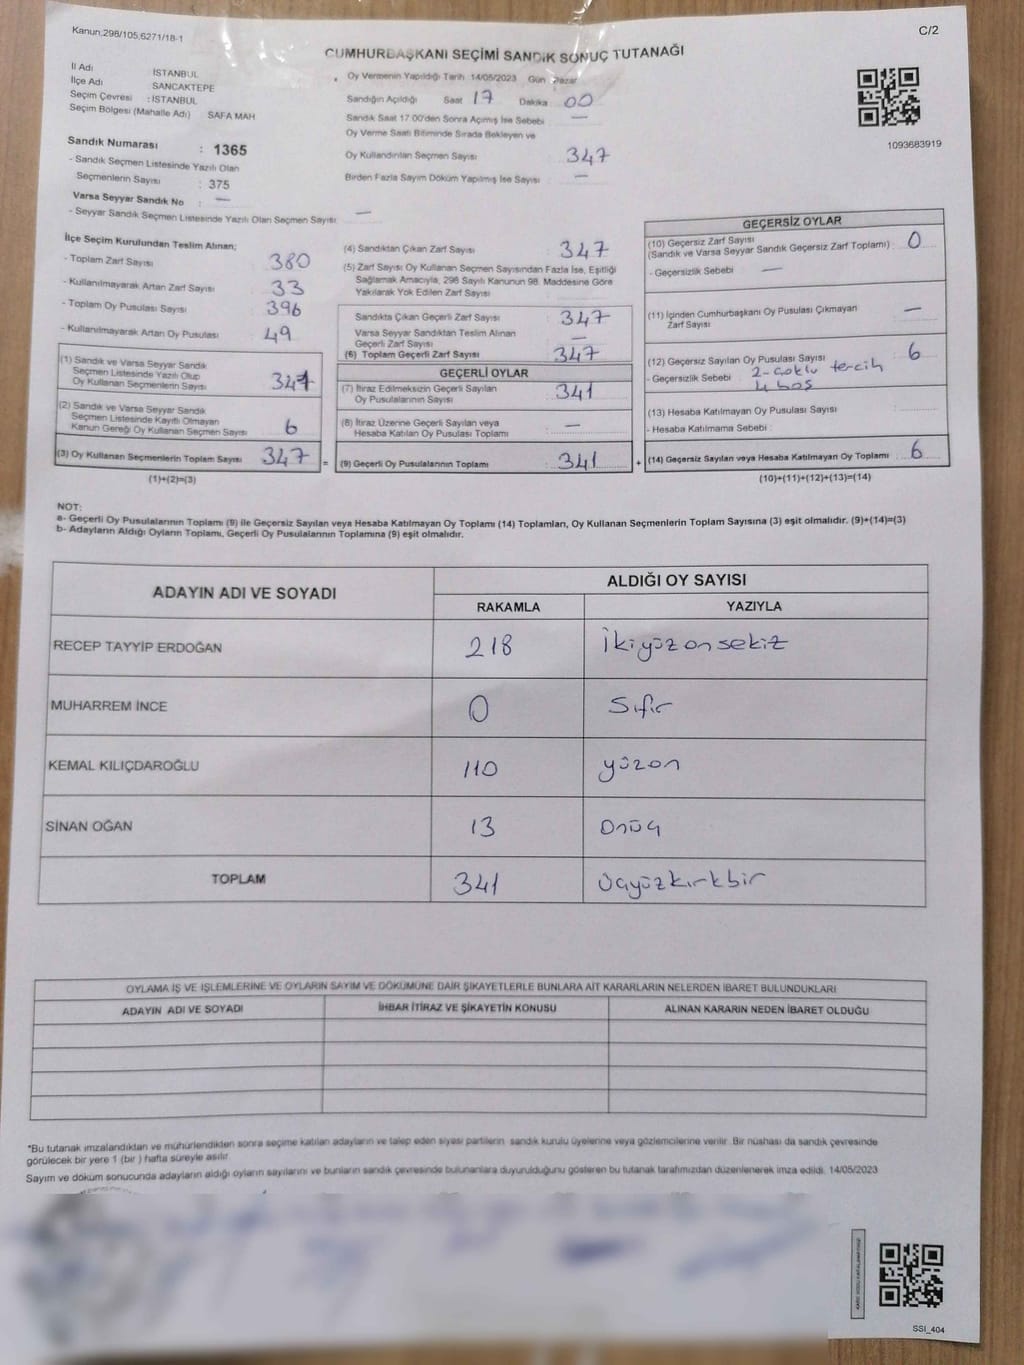 Kanun,298/105,6271/18-1
C/2
CUMHURBAŞKANI SEÇİMİ SANDIK SONUÇ TUTANAĞI
İl Adı İSTANBUL
İlçe Adı SANCAKTEPE
Seçim Çevresi : İSTANBUL
Seçim Bölgesi (Mahalle Adı) SAFA MAH
Oy Vermenin Yapıldığı Tarih 14/05/2023 Gün Pazar
Sandığın Açıldığı Saat 17 Dakika 00
Sandık Saat 17.00'den Sonra Açımış İse Sebebi —
Oy Verme Saati Bitiminde Sırada Bekleyen ve
Oy Kullandırılan Seçmen Sayısı 347
Birden Fazla Sayım Döküm Yapılmış İse Sayısı —
1093683919
Sandık Numarası : 1365
- Sandık Seçmen Listesinde Yazılı Olan
Seçmenlerin Sayısı : 375
Varsa Seyyar Sandık No : —
- Seyyar Sandık Seçmen Listesinde Yazılı Olan Seçmen Sayısı —
İlçe Seçim Kurulundan Teslim Alınan;
- Toplam Zarf Sayısı 380
- Kullanılmayarak Artan Zarf Sayısı 33
- Toplam Oy Pusulası Sayısı 396
- Kullanılmayarak Artan Oy Pusulası 49
(1) Sandık ve Varsa Seyyar Sandık
Seçmen Listesinde Yazılı Olup
Oy Kullanan Seçmenlerin Sayısı
(2) Sandık ve Varsa Seyyar Sandık
Seçmen Listesinde Kayıtlı Olmayan
Kanun Gereği Oy Kullanan Seçmen Sayısı 6
(3) Oy Kullanan Seçmenlerin Toplam Sayısı 347 =
(1)+(2)=(3)
(4) Sandıktan Çıkan Zarf Sayısı : 347
(5) Zarf Sayısı Oy Kullanan Seçmen Sayısından Fazla İse, Eşitliği
Sağlamak Amacıyla, 298 Sayılı Kanunun 98. Maddesine Göre
Yakılarak Yok Edilen Zarf Sayısı
Sandıkta Çıkan Geçerli Zarf Sayısı : 347
Varsa Seyyar Sandıktan Teslim Alınan
Geçerli Zarf Sayısı —
(6) Toplam Geçerli Zarf Sayısı 347
GEÇERLİ OYLAR
(7) İtiraz Edilmeksizin Geçerli Sayılan
Oy Pusulalarının Sayısı : 341
(8) İtiraz Üzerine Geçerli Sayılan veya
Hesaba Katılan Oy Pusulası Toplamı : —
(9) Geçerli Oy Pusulalarının Toplamı : 341 +
GEÇERSİZ OYLAR
(10) Geçersiz Zarf Sayısı
(Sandık ve Varsa Seyyar Sandık Geçersiz Zarf Toplamı) : 0
- Geçersizlik Sebebi —
(11) İçinden Cumhurbaşkanı Oy Pusulası Çıkmayan
Zarf Sayısı —
(12) Geçersiz Sayılan Oy Pusulası Sayısı : 6
- Geçersizlik Sebebi : 2-çoklu tercih
4 boş
(13) Hesaba Katılmayan Oy Pusulası Sayısı
- Hesaba Katılmama Sebebi
(14) Geçersiz Sayılan veya Hesaba Katılmayan Oy Toplamı : 6
(10)+(11)+(12)+(13)=(14)
NOT:
a- Geçerli Oy Pusulalarının Toplamı (9) ile Geçersiz Sayılan veya Hesaba Katılmayan Oy Toplamı (14) Toplamları, Oy Kullanan Seçmenlerin Toplam Sayısına (3) eşit olmalıdır. (9)+(14)=(3)
b- Adayların Aldığı Oyların Toplamı, Geçerli Oy Pusulalarının Toplamına (9) eşit olmalıdır.
ADAYIN ADI VE SOYADI
ALDIĞI OY SAYISI
RAKAMLA YAZIYLA
RECEP TAYYİP ERDOĞAN 218 İkiyüzonsekiz
MUHARREM İNCE 0 Sıfır
KEMAL KILIÇDAROĞLU 110 yüzon
SİNAN OĞAN 13 Onüç
TOPLAM 341 Üçyüzkırkbir
OYLAMA İŞ VE İŞLEMLERİNE VE OYLARIN SAYIM VE DÖKÜMÜNE DAİR ŞİKAYETLERLE BUNLARA AİT KARARLARIN NELERDEN İBARET BULUNDUKLARI
ADAYIN ADI VE SOYADI İHBAR İTİRAZ VE ŞİKAYETİN KONUSU ALINAN KARARIN NEDEN İBARET OLDUĞU
*Bu tutanak imzalandıktan ve mühürlendikten sonra seçime katılan adayların ve talep eden siyasi partilerin sandık kurulu üyelerine veya gözlemcilerine verilir. Bir nüshası da sandık çevresinde
görülecek bir yere 1 (bir ) hafta süreyle asılır.
Sayım ve döküm sonucunda adayların aldığı oyların sayılarını ve bunların sandık çevresinde bulunanlara duyurulduğunu gösteren bu tutanak tarafımızdan düzenlenerek imza edildi. 14/05/2023
SSI_404